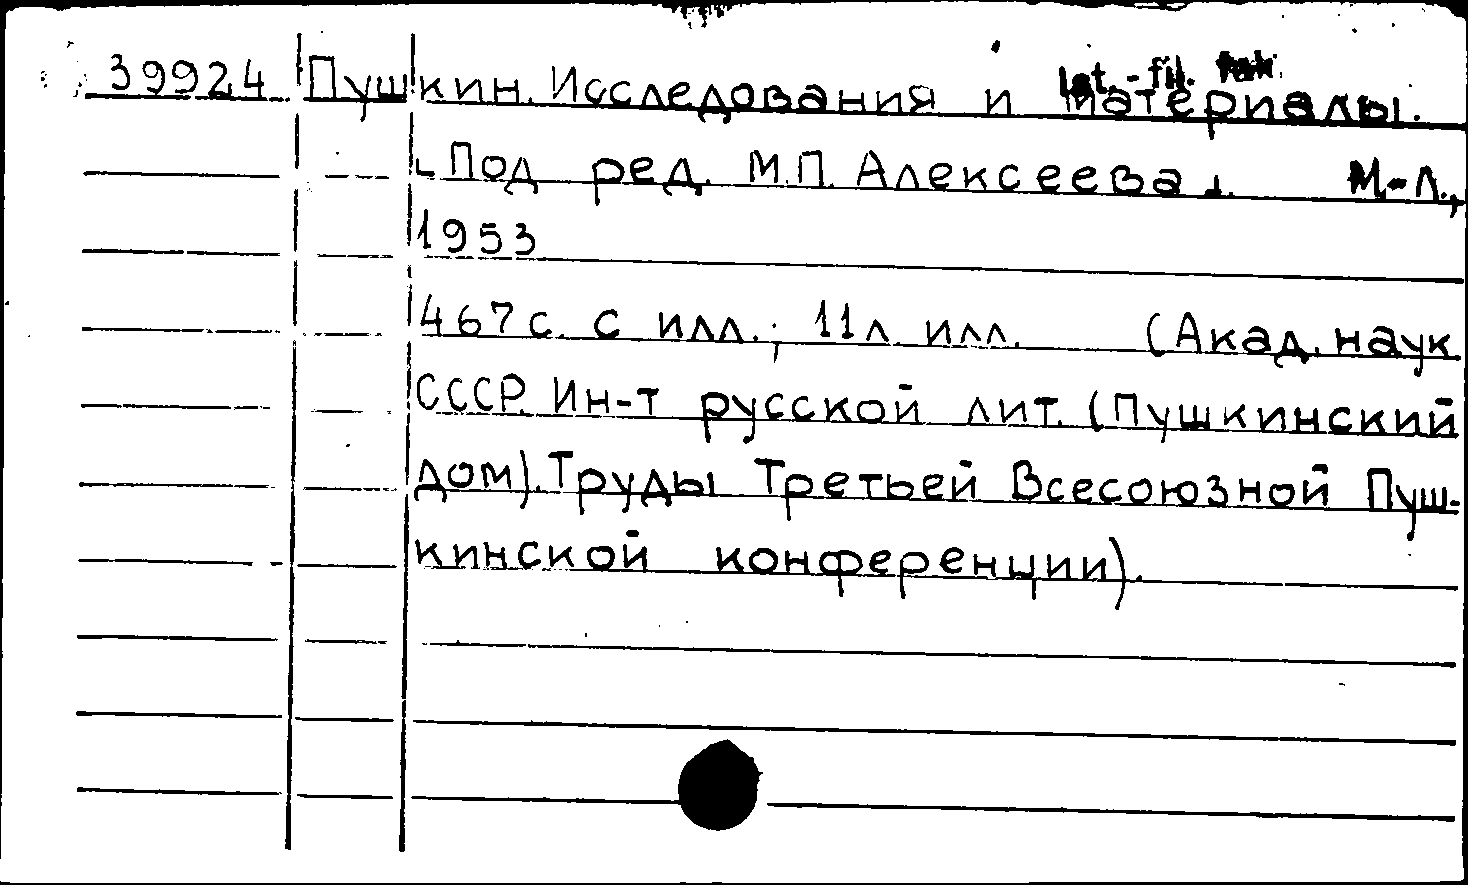 39924 Пушкин. Исследования и материалы.
ist.-fil. fak.
[Под ред. М.П. Алексеева]. М.-Л.,
1953
467 с. с илл.; 11 л. илл. (Акад. наук
СССР. Ин-т русской лит. (Пушкинский
дом). Труды Третьей Всесоюзной Пуш-
кинской конференции).